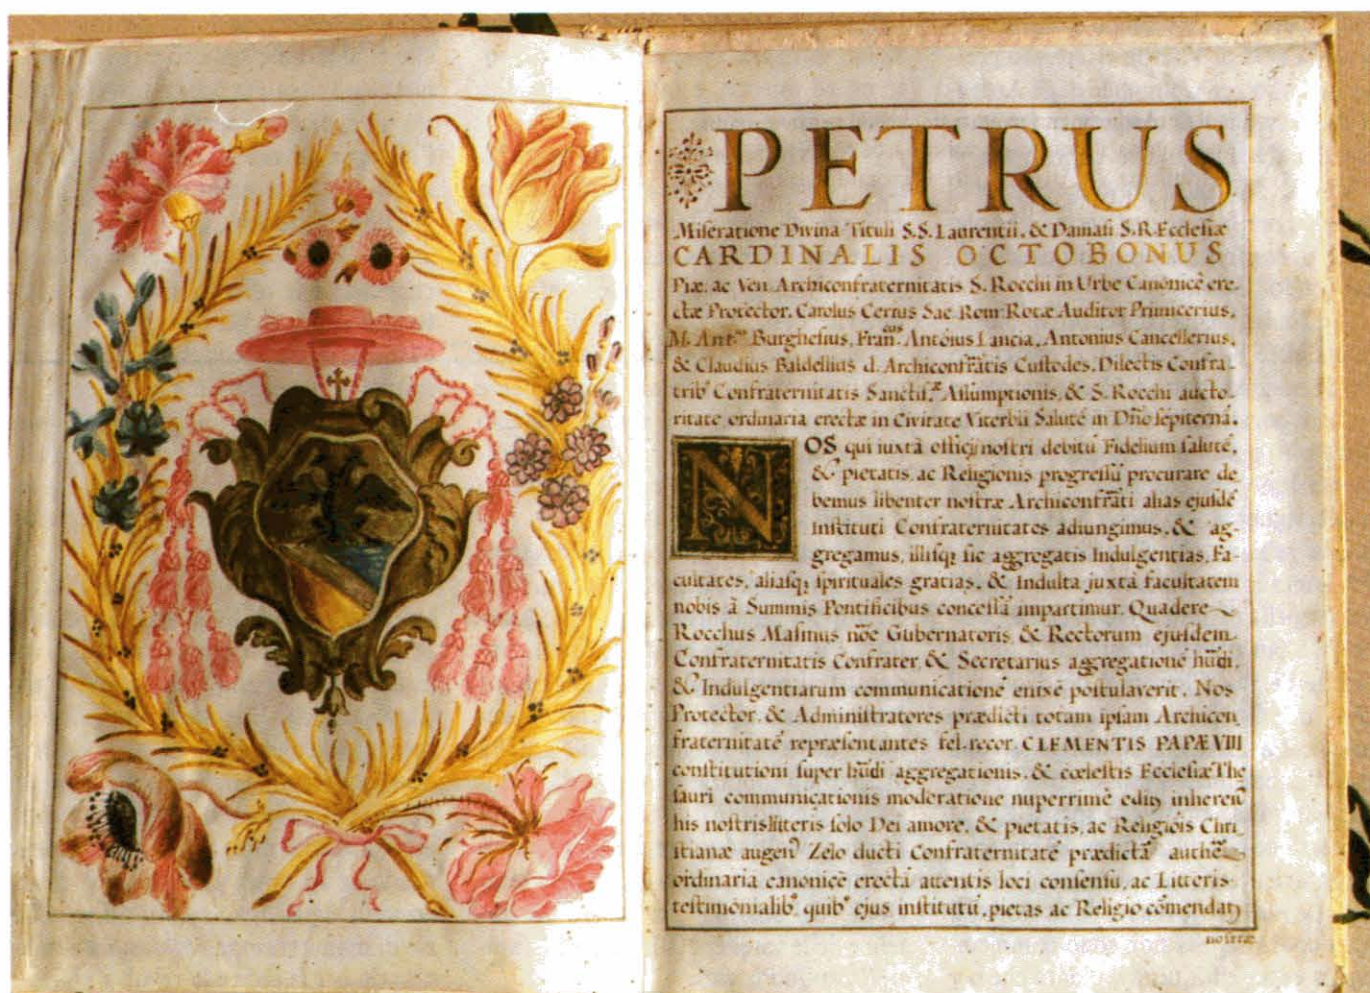 5
PETRUS
Miseratione Divina Tituli S.S. Laurentii, & Damasi S.R.Ecclesiæ
CARDINALIS OCTOBONUS
Piæ, ac Ven. Archiconfraternitatis S. Rocchi in Urbe Canonicè ere-
ctæ Protector, Carolus Cerrus Sac. Rom: Rotæ Auditor Primicerius,
M. Ant.us Burghesius, Fran.cus Antōius Lancia, Antonius Cancellerius,
& Claudius Baldellius d. Archiconfrātis Custodes, Dilectis Confra-
trib' Confraternitatis Sanctiss.æ Assumptionis, & S. Rocchi aucto-
ritate ordinaria erectæ in Civitate Viterbii Salutē in Dño sepiternā.
NOS qui iuxtà officij nostri debitū Fidelium salutē,
& pietatis, ac Religionis progressū procurare de
bemus libenter nostræ Archiconfrāti alias ejusdē
instituti Confraternitates adiungimus, & ag-
gregamus, illisq; sic aggregatis Indulgentias, Fa-
cultates, aliasq; spirituales gratias, & Indulta juxtà facultatem
nobis à Summis Pontificibus concessā impartimur. Quadere
Rocchus Masinus nōe Gubernatoris, & Rectorum ejusdem
Confraternitatis Confrater, & Secretarius aggregationē hūdi,
& Indulgentiarum communicationē enixè postulaverit. Nos
Protector, & Administratores prædicti totam ipsam Archicon
fraternitatē repræsentantes fel. recor. CLEMENTIS PAPÆ VIII
constitutioni super hūdi aggregationis, & cœlestis Ecclesiæ The
sauri communicationis moderatione nuperrimè editę inhereñ
his nostris litteris solo Dei amore, & pietatis, ac Religiōis Chri
stianæ augeñ Zelo ducti Confraternitatē prædictā authē
ordinaria canonicè erectā attentis loci consensu, ac Litteris
testimonialib' quib' ejus institutū, pietas ac Religio cōmendatꝫ
nostræ